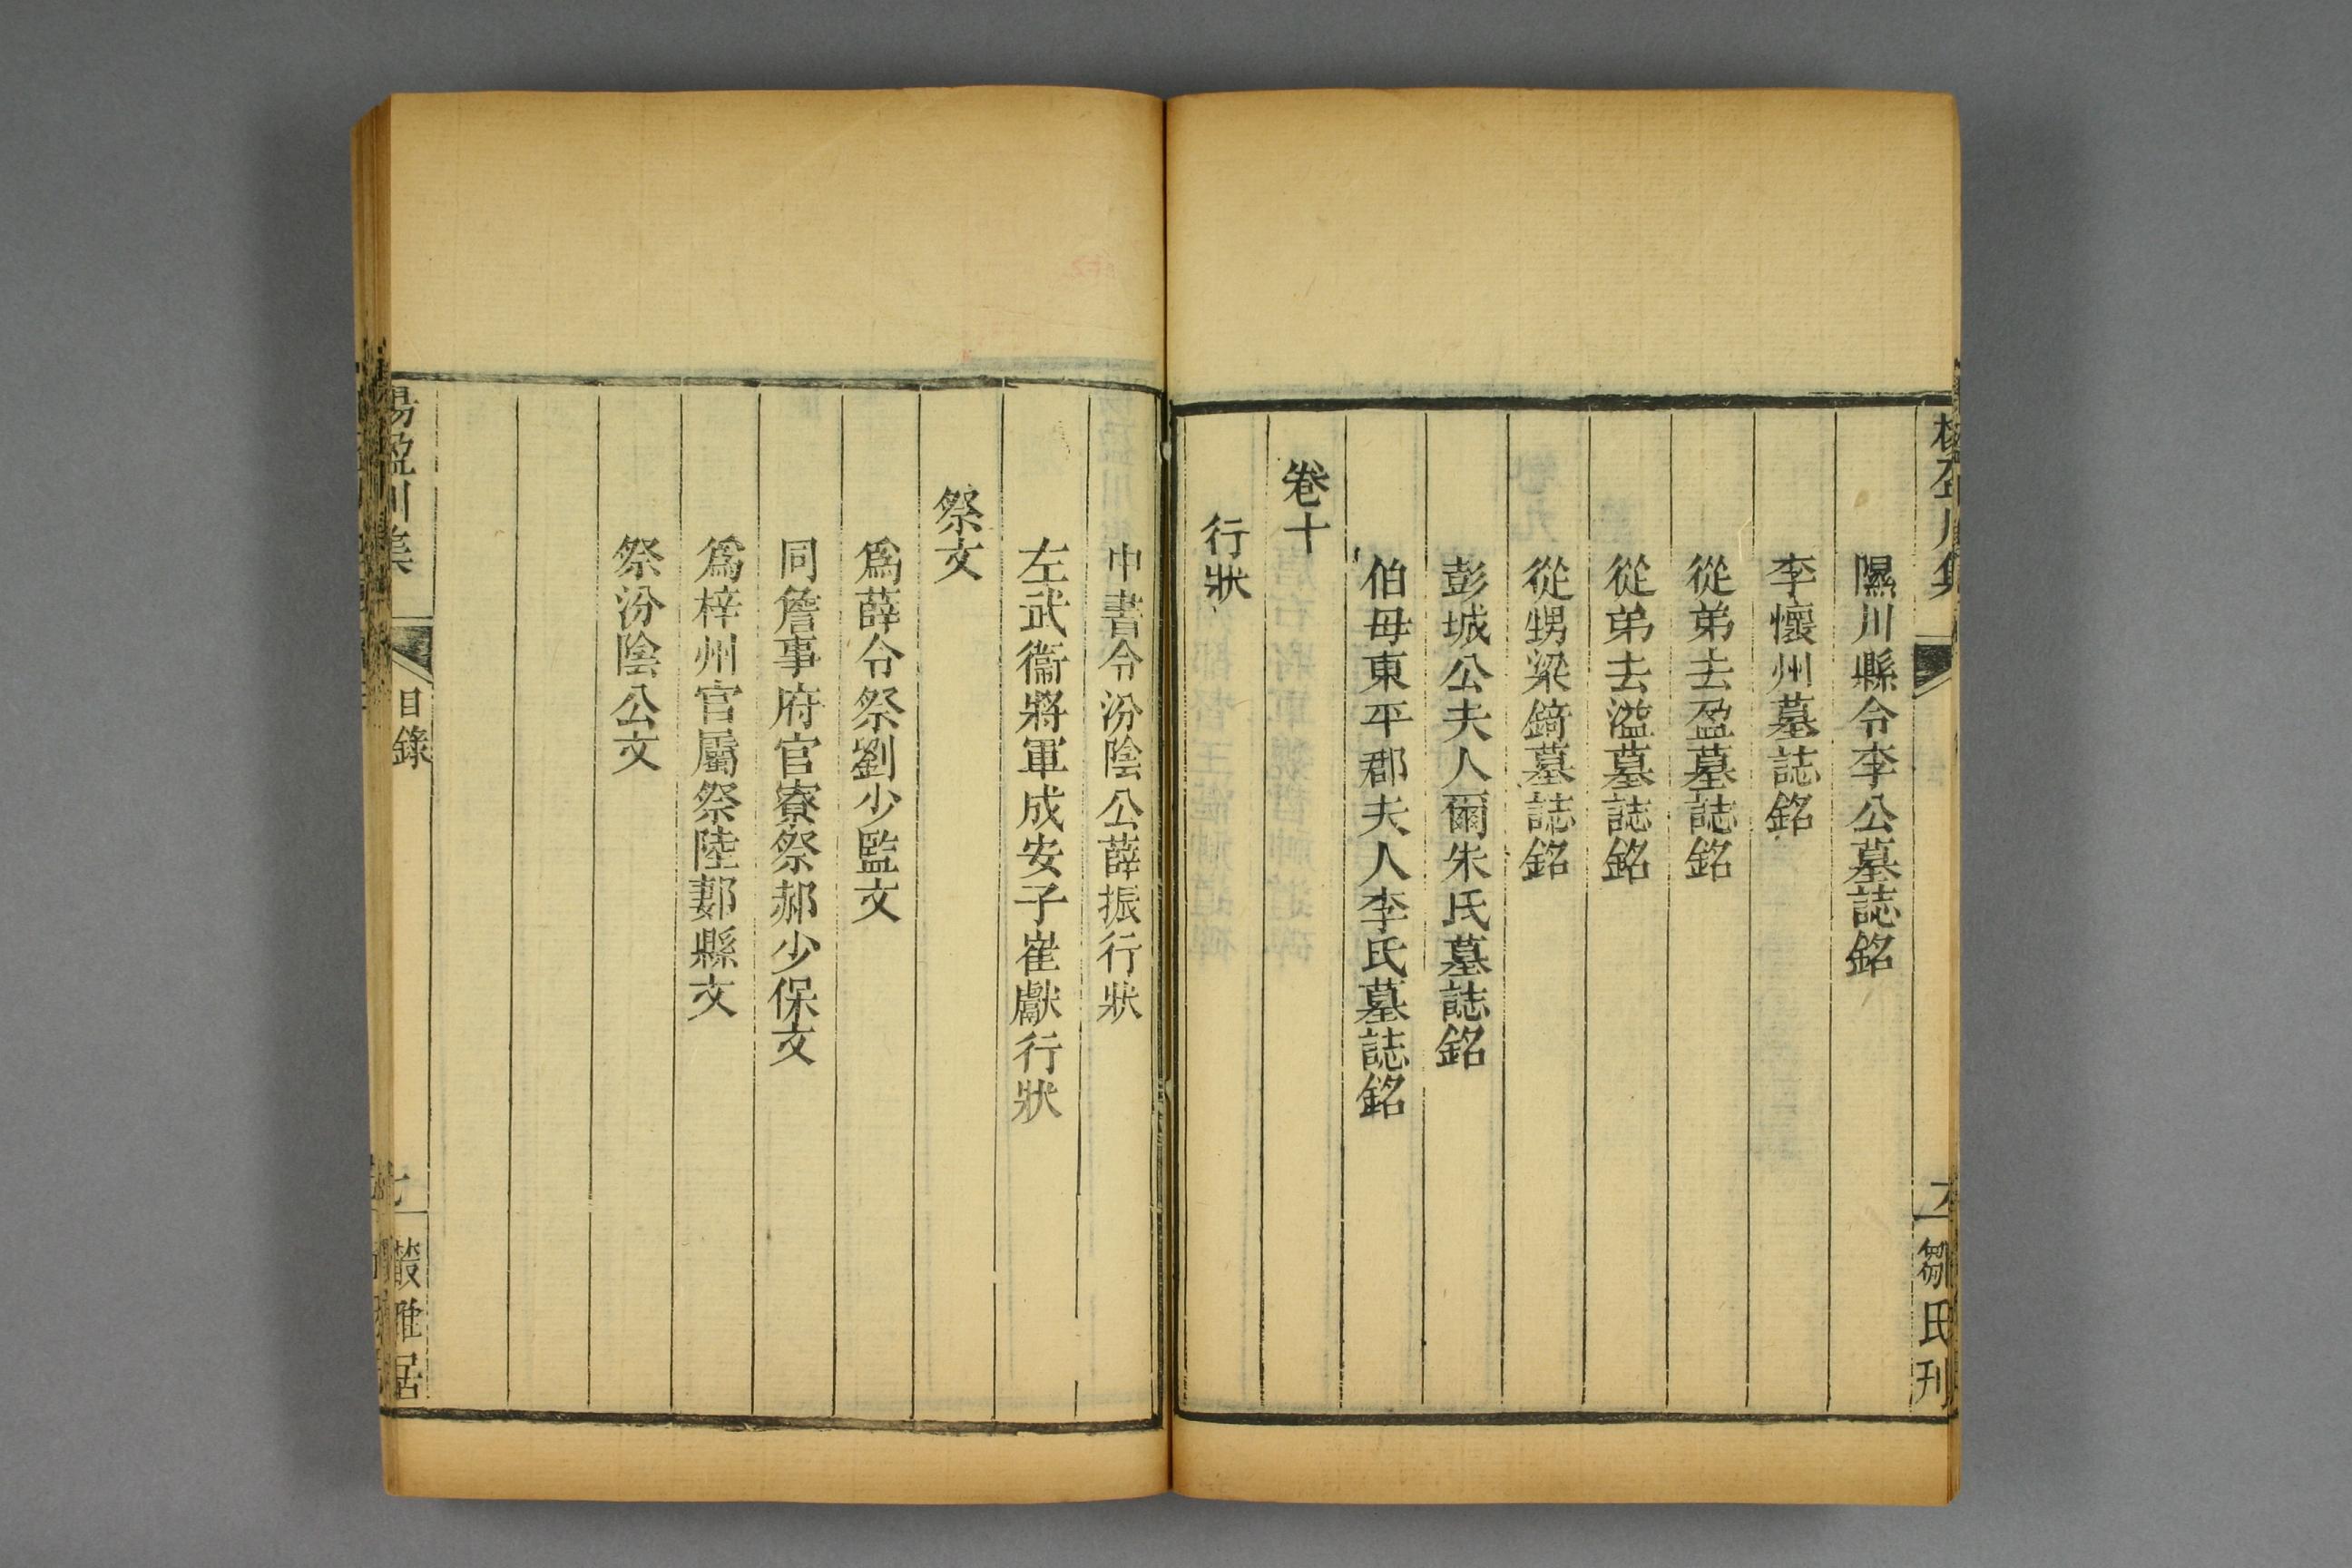 隰川縣令李公墓誌銘
李懷州墓誌銘
從弟去盈墓誌銘
從弟去溢墓誌銘
從甥梁錡墓誌銘
彭城公夫人爾朱氏墓誌銘
伯母東平郡夫人李氏墓誌銘
卷十
行狀
鄒氏刊
中書令汾陰公薛振行狀
左武衞將軍成安子崔獻行狀
祭文
爲薛令祭劉少監文
同詹事府官寮祭郝少保文
爲梓州官屬祭陸郪縣文
祭汾陰公文
楊盈川集
目錄
七
叢雅居